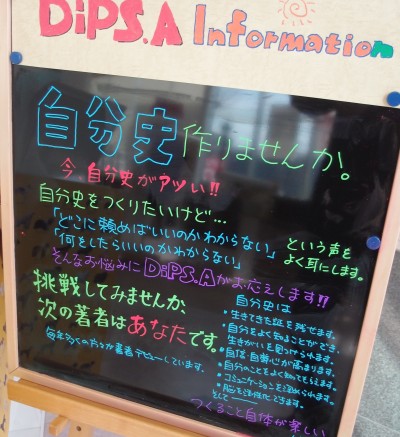 DiPS.A Information
自分史作りませんか。
今、自分史がアツい!!
自分史をつくりたいけど…
「どこに頼めばいいのかわからない」
「何をしたらいいのかわからない」
という声を
よく耳にします。
そんなお悩みにDiPS.Aがお応えします!!
挑戦してみませんか、
次の著者はあなたです。
毎年多くの方が著者デビューしています。
自分史は
・生きてきた証を残せます。
・自分をよく知ることができ、
生きがいを見つけられます。
・自信・自尊心が高まります。
・自分のことをよく知ってもらえます。
・コミュニケーションを深められます。
・脳を活性化できます。
そして
つくること自体が楽しい